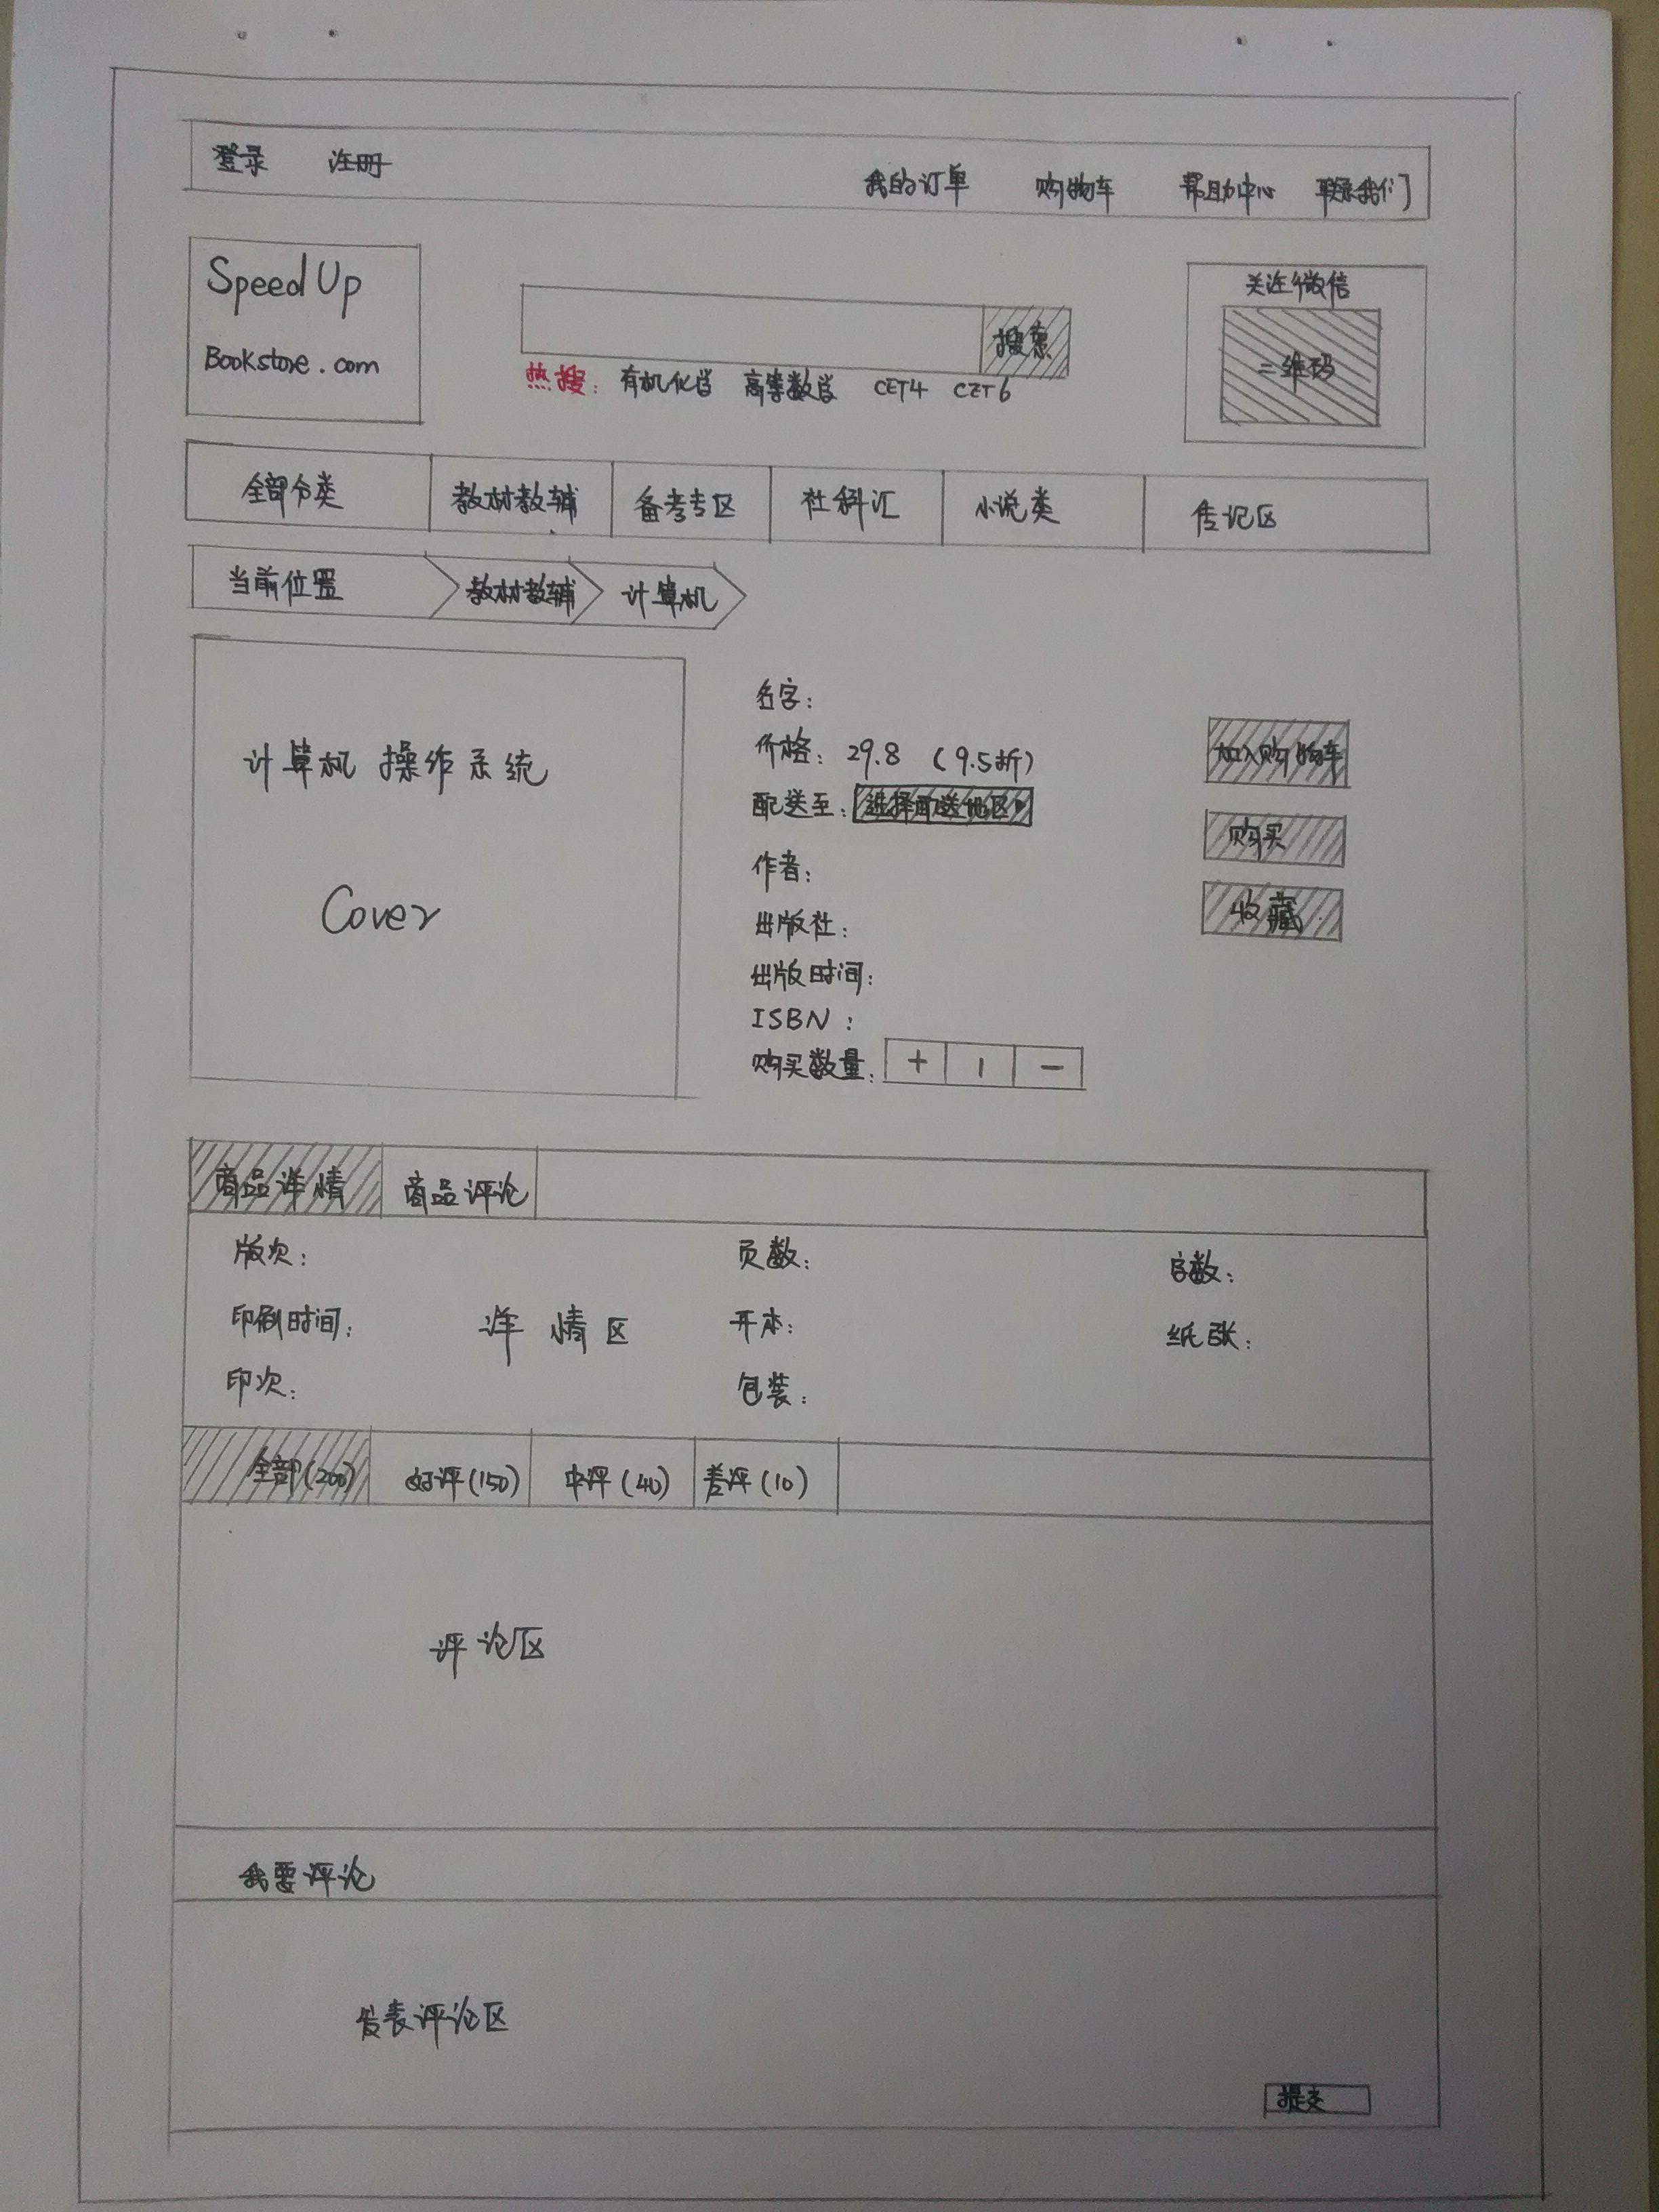 登录 注册 我的订单 购物车 帮助中心 联系我们
Speed Up
Bookstore.com
搜索
热搜: 有机化学 高等数学 CET4 CET6
关注微信
二维码
全部分类 教材教辅 备考专区 社科汇 小说类 传记区
当前位置 教材教辅 计算机
计算机 操作系统
Cover
名字:
价格: 29.8 (9.5折)
配送至: 选择配送地区
作者:
出版社:
出版时间:
ISBN:
购买数量: + 1 -
加入购物车
购买
收藏
商品详情 商品评论
版次: 页数: 字数:
印刷时间: 详情区 开本: 纸张:
印次: 包装:
全部(200) 好评(150) 中评(40) 差评(10)
评论区
我要评论
发表评论区
提交